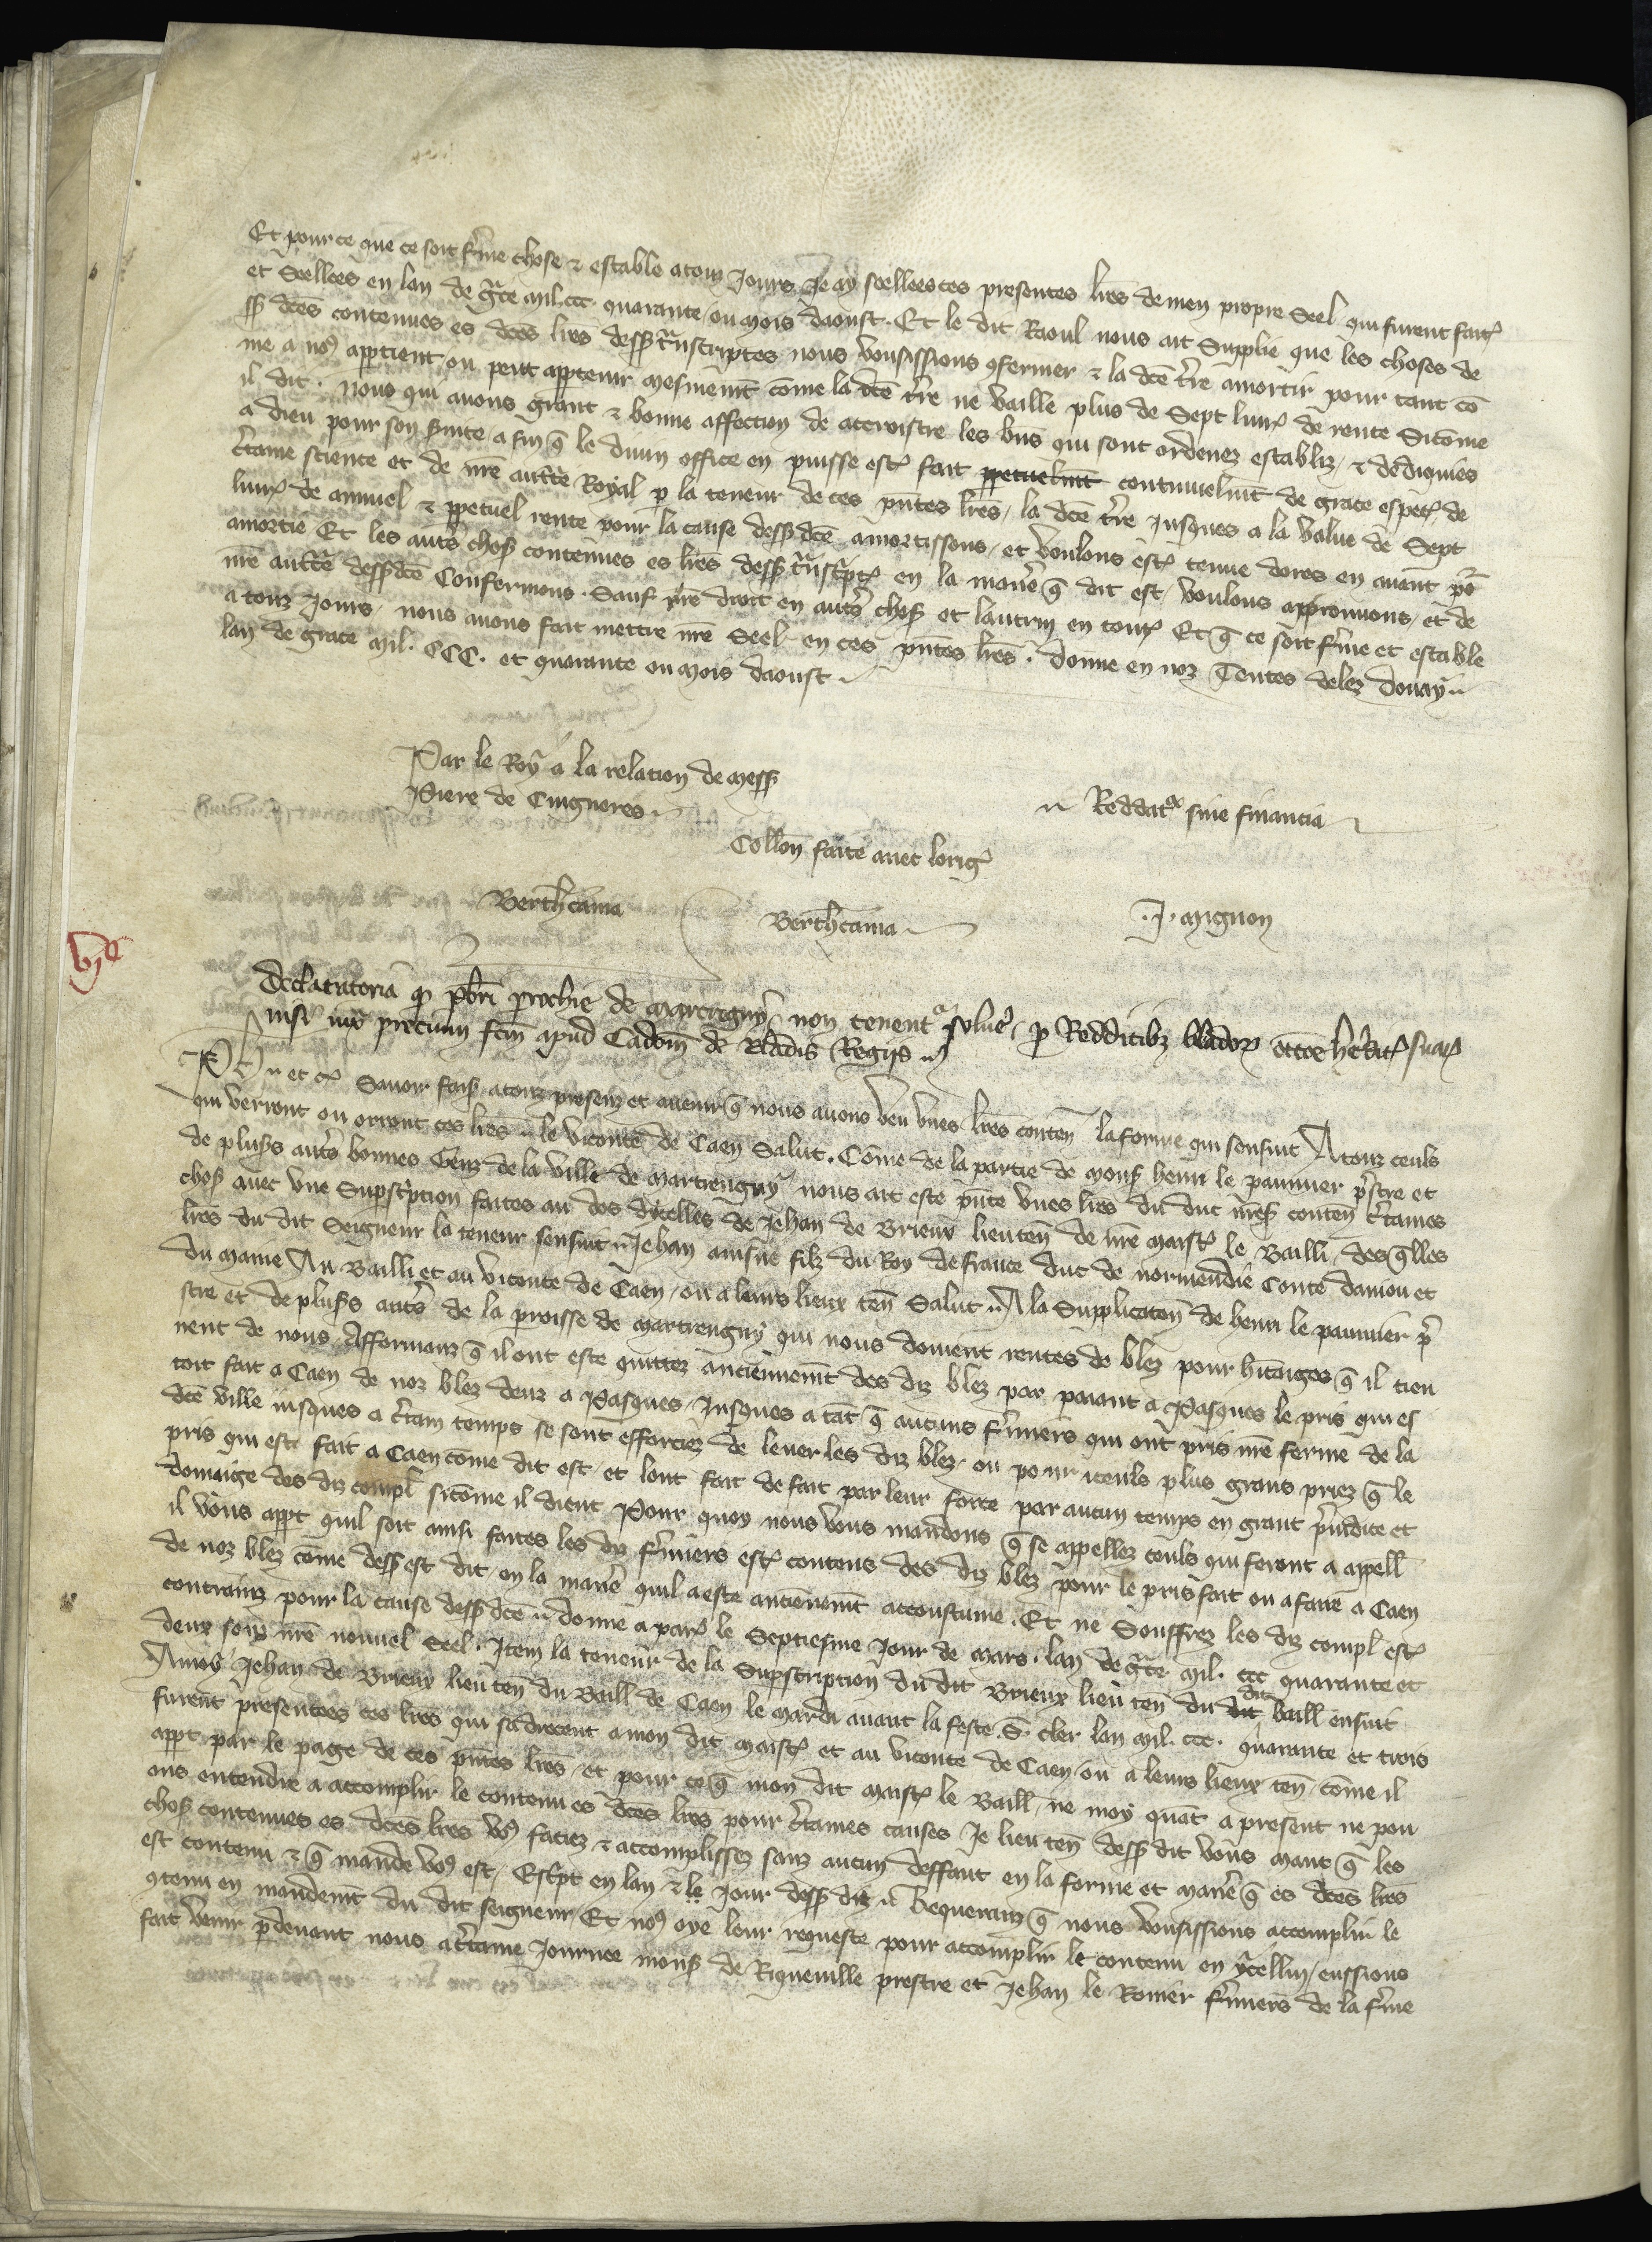 Et pour ce que ce soit ferme chose & estable a touz Jours Je ay seellees ces presentes lres de men propre Seel qui furent faites
et Seellees en lan de grace mil. ccc. quarante ou mois daoust. Et le dit Raoul nous ait Supplie que les choses de
ss dces contenues es dces lres dess transcriptes nous vousissions confermer & la dce tre amortir pour tant co
me a nos appartient ou peut appartenir mesmemt come la dce tre ne vaille plus de Sept livres de rente Sicome
il dit. nous qui avons grant & bonne affection de acroistre les biens qui sont ordenez establiz, & dediquies
a dieu pour son service a fin q le divin office en puisse estre fait ppetuelmt continuelmt de grace especial de
certaine science et de nre autte Royal p la teneur de ces pntes lres, la dce tre Jusques a la value de Sept
livres de annuel & ppetuel rente pour la cause dess dce amortissons, et voulons estre tenue dores en avant por
amortie Et les autres choses contenues es lres dess transcriptes en la maniere q dit est, voulons approuvons, et de
nre auttre dess dce Confermons. Sauf nre droit en autres choses et lautrui en toutes Et q ce soit ferme et estable
a touz Jours, nous avons fait mettre nre Seel en ces pntes lres. donne en noz Tentes delez Douay
lan de grace mil. CCC. et quarante ou mois daoust
Par le Roy a la relation de mess
Piere de Cuigneres
Reddatur sine financia
Collon faite avec lorig
Berthcama
Berthcama
J. mignon
vje
Declaratoria q pbri prochie de martregny non tenentur solvere, p Redditibz bladorum occoe heredit suarum
nisi iux precium fcm apud Cadom de Bladis Regiis
Ph et c Savoir fais a touz presenz et avenir q nous avons veu unes lres conten la forme qui sensuit A touz ceuls
qui verront ou orront ces lres le viconte de Caen Salut. Come de la partie de mons henri le paumier prestre et
de plus autres bonnes Genz de la ville de martrengny nous ait este pnte unes lres du duc nres conten certaines
choses avec une Superscription faites au dos dicelles de Jehan de Brieux lieuten de nre maistre le Bailli des qlles
lres du dit Seigneur la teneur sensuit Jehan ainsne filz du Roy de france duc de normendie Conte daniou et
du maine Au Bailli et au viconte de Caen, ou a leurs lieux ten Salut A la Supplicaton de henri le paumier pre
stre et de plus autres de la proisse de martrengny qui nous doivent rentes de blez pour hitaiges q il tien
nent de nous Affermanz q il ont este quittez anciennemt des diz blez par paiant a Pasques le pris qui es
toit fait a Caen de noz blez deuz a Pasques, Jusques a tat q aucuns fermiers qui ont pris nre ferme de la
dce ville iusques a certain temps se sont efforciez de lever les diz blez ou pour iceuls plus grans priez q le
pris qui est fait a Caen come dit est, et lont fait de fait par leur force par aucun temps en grant preiudice et
domaige des diz compl sicome il dient Pour quoy nous vous mandons q se appellez ceuls qui feront a appell
il vous appt quil soit ainsi faites les diz fermiers estre contens des diz blez pour le pris fait ou a faire a Caen
de noz blez come dess est dit en la maniere quil a este anciennemt accoustume. Et ne Souffrez les diz compl estre
contrainz pour la cause dess dce donne a paris le Septiesme Jour de mars. lan de grace mil. ccc quarante et
deux souz nre nouvel Seel. Item la teneur de la Superscription du dit Brieux lieu ten du dit baill ensuit
A moy Jehan de Brieux lieu ten du Baill de Caen le mardi avant la feste S. cler lan mil. ccc. quarante et trois
furent presentees ces lres qui sadrecent a mon dit maistre et au viconte de Caen, ou a leurs lieux ten, come il
appt par le page de ces pntes lres, et pour ce q mon dit maistre le Baill, ne moy quat a present ne pou
ons entendre a accomplir le contenu es dces lres pour certaines causes Je lieu ten dess dit vous mant q les
choses contenues es dces lres vos faciez & accomplissez sanz aucun deffaut en la forme et maniere q es dces lres
est contenu & q mande vos est, Escript en lan & le Jour dess diz Requeranz q nous vousissions accomplir le
contenu en mandemt du dit seigneur, Et nos oye leur requeste pour accomplir le contenu en ycellui, eussions
fait venir pdevant nous a certaine Journee mons de Riqueville prestre et Jehan le Romier fermiers de la ferme